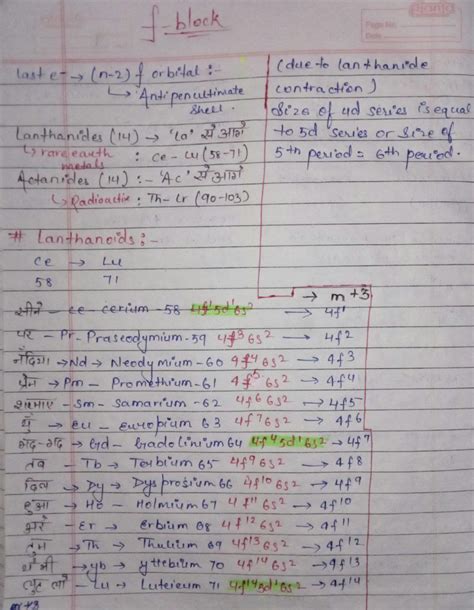 f-block
Page No.
Date
last e- → (n-2) f orbital :-
↳ Antipenultimate
Shell.
Lanthanides (14) → 'La' से आगे
↳ rare earth metals : Ce - Lu (58-71)
Actanides (14) :- 'Ac' से आगे
↳ Radioactive : Th - Lr (90-103)
(due to lanthanide
contraction)
Size of 4d series is equal
to 5d series or size of
5th period = 6th period.
# Lanthanoids :-
Ce → Lu
58 71
→ m+3
सीने - Ce - cerium - 58 4f¹5d¹6s² → 4f¹
पर - Pr - Praseodymium - 59 4f³6s² → 4f2
→ Nd → Neodymium - 60 4f⁴6s² → 4f3
प्रेम → Pm - Promethium - 61 4f⁵6s² → 4f4
- Sm - Samarium - 62 4f⁶6s² → 4f5
यु → Eu - europium 63 4f⁷6s² → 4f6
गद-गद → Gd - Gadolinium 64 4f⁷5d¹6s² → 4f⁷
तब - Tb → Terbium 65 4f⁹6s² → 4f8
दिल → Dy → Dysprosium 66 4f¹⁰6s² → 4f9
हुआ → Ho - Holmium 67 4f¹¹6s² → 4f10
अरे - Er → Erbium 68 4f¹²6s² → 4f¹¹
तुम → Th → Thulium 69 4f¹³6s² → 4f12
→ yb → ytterbium 70 4f¹⁴6s² → 4f13
लूट लो → Lu → Luteieum 71 4f¹⁴5d¹6s² → 4f14
m+3